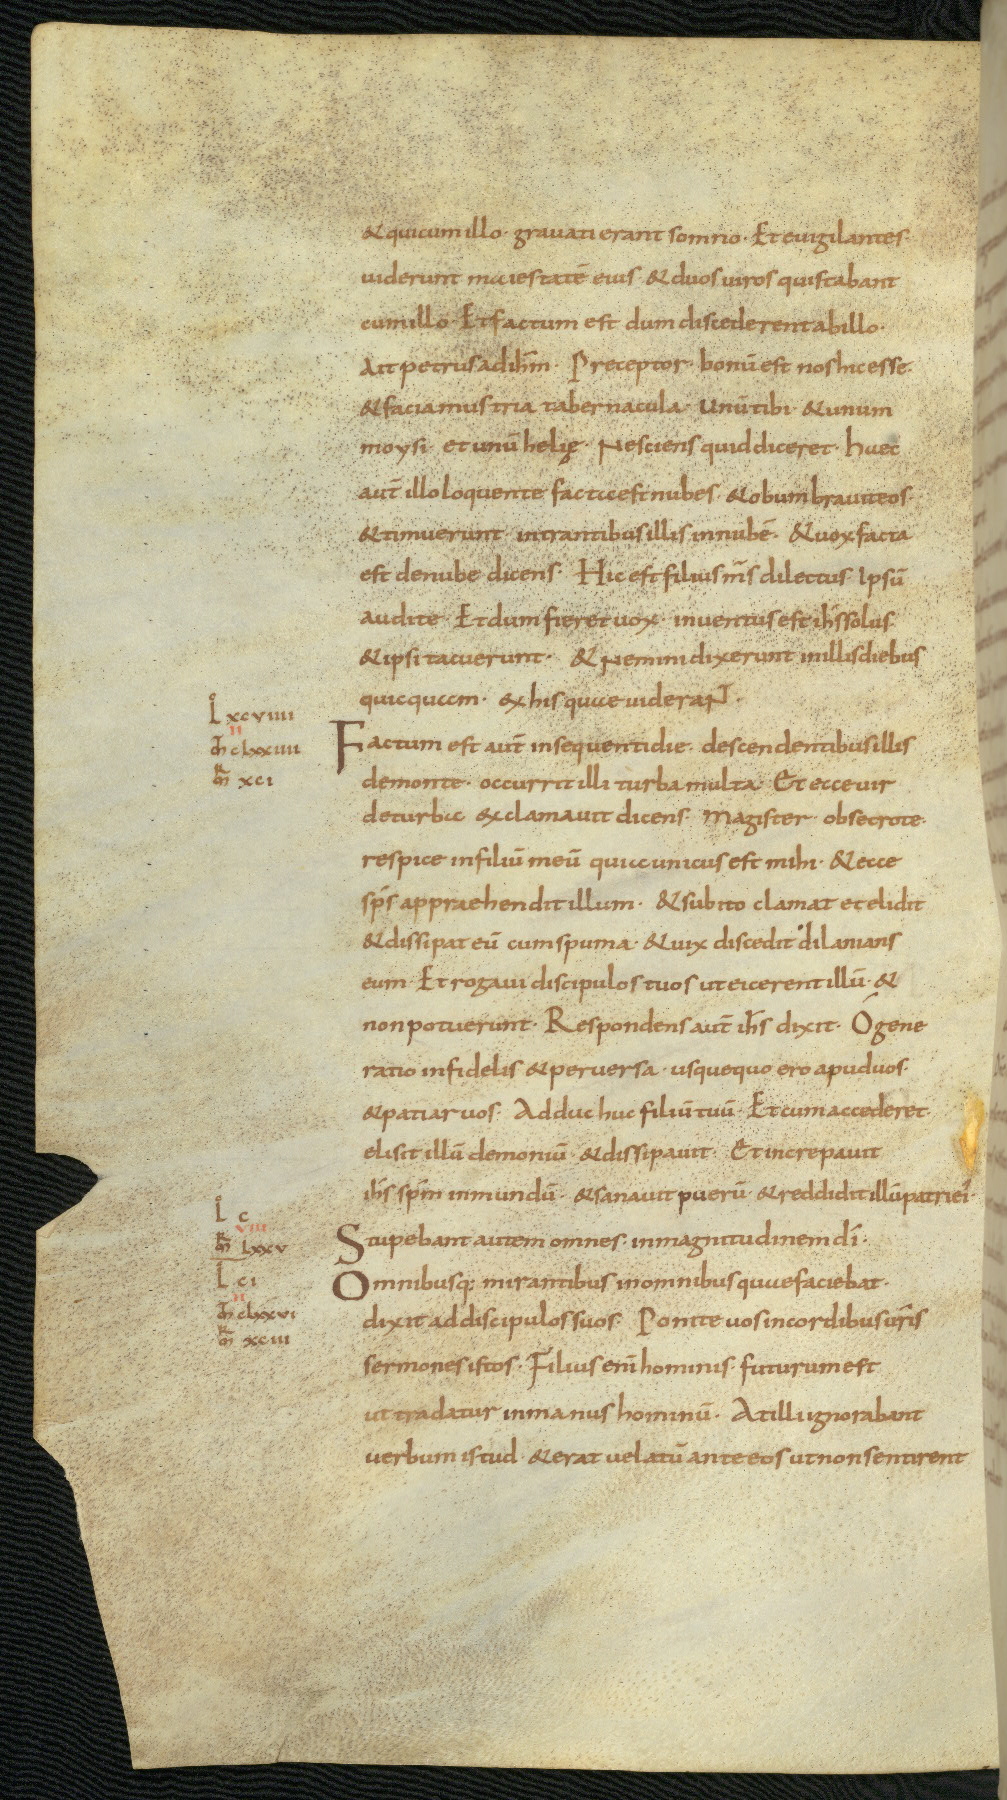 & qui cum illo· gravati erant somno· Et euigilantes·
uiderunt maiestatē eius· & duos uiros qui stabant
cum illo· Et factum est dum discederent ab illo·
Ait petrus ad ihm̄· Preceptor· bonū est nos hic esse·
& faciamus tria tabernacula· unū tibi· & unum
moysi· et unū helię· Nesciens quid diceret· haec
aut̄ illo loquente facta est nubes· & obumbrauit eos·
& timuerunt· intrantibus illis in nubē· & uox facta
est de nube dicens· Hic est filius m̄s dilectus· Ipsū
audite· Et dum fieret uox· inuentus est ih̄s solus·
& ipsi tacuerunt· & Nemini dixerunt in illis diebus
quicquam· ex his quae uideraNT·
L̊ xcviiii
II
m̄ clxxiiii
m̄ʀ xci
Factum est aut̄ in sequenti die· descendentibus illis
de monte· occurrit illi turba multa· Et ecce uir
de turba exclamauit dicens· Magister obsecro te·
respice in filiū meū quia unicus est mihi· & ecce
sp̄s appraehendit illum· & subito clamat et elidit
& dissipat eū cum spuma· & uix discedit dilanians
eum· Et rogaui discipulos tuos ut eicerent illū· &
non potuerunt· Respondens aut̄ ih̄s dixit· Ó gene
ratio infidelis & peruersa· usquequo ero apud uos·
& patiar uos· Adduc huc filiū tuū· Et cum accederet·
elisit illū demoniū· & dissipauit· Et increpauit
ih̄s sp̄m inmundū· & sanauit puerū· & reddidit illū patri ei'·
L̊ c
VIII
m̄ʀ lxxv
Stupebant autem omnes· in magnitudinem dī·
L̊ ci
II
m̄ clxxvi
m̄ʀ xciii
Omnibusq; mirantibus in omnibus quae faciebat·
dixit ad discipulos suos· Ponite uos in cordibus ur̄is
sermones istos· Filius enī hominis· futurum est
ut tradatur in manus hominū· At illi ignorabant
uerbum istud· & erat uelatū ante eos ut non sentirent